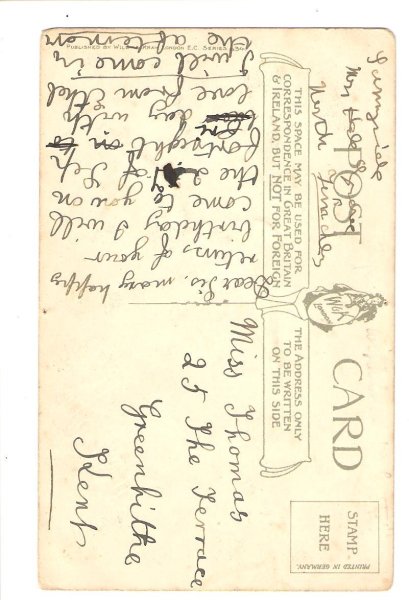 POST CARD
THIS SPACE MAY BE USED FOR
CORRESPONDENCE IN GREAT BRITAIN
& IRELAND, BUT NOT FOR FOREIGN
THE ADDRESS ONLY
TO BE WRITTEN
ON THIS SIDE
STAMP
HERE
PRINTED IN GERMANY.
W&K
London
Sunnyside
Mrs
North
Dear Sis. many happy
returns of your
birthday I will
come to you on
the 2 of Sep
fortnight
day with
love from Ethel
I will come in
the afternoon
Miss Thomas
25 The Terrace
Greenhithe
Kent
PUBLISHED BY LONDON E.C. SERIES